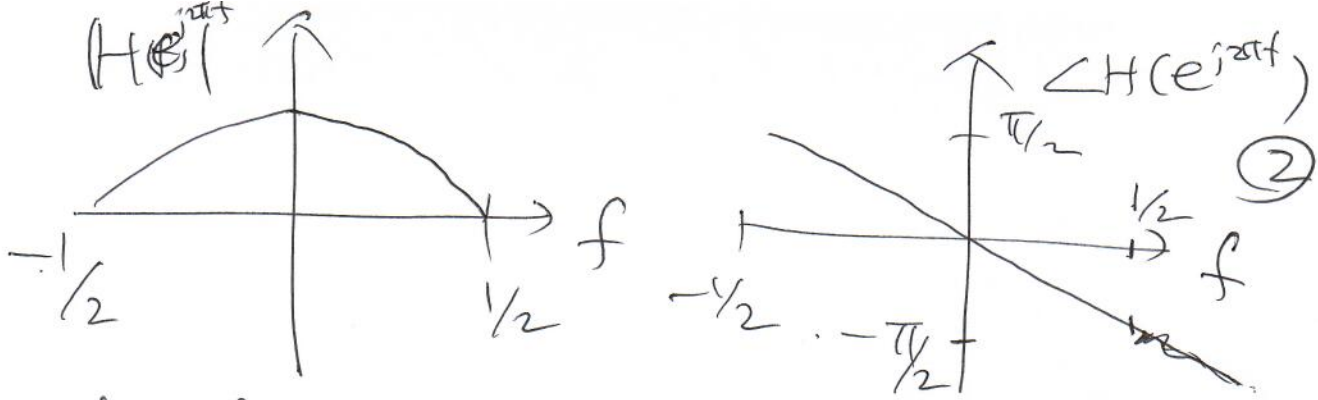 |H(e^{j2πf})|
-1/2
1/2
f
∠H(e^{j2πf})
π/2
②
1/2
f
-1/2
-π/2